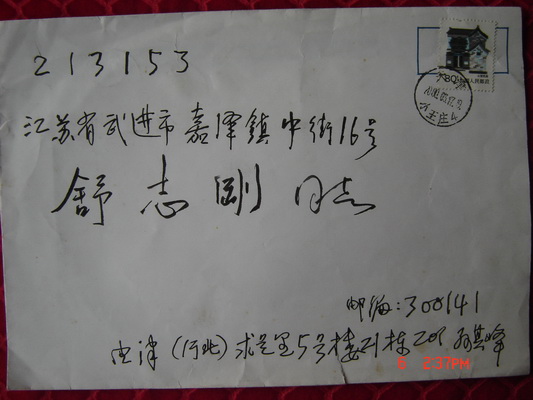 213153
江苏省武进市嘉泽镇中街16号
舒志刚 同志
邮编:300141
天津(河北)求是里5号楼21栋201 孙其峰
80
中国人民邮政
6 2:37PM